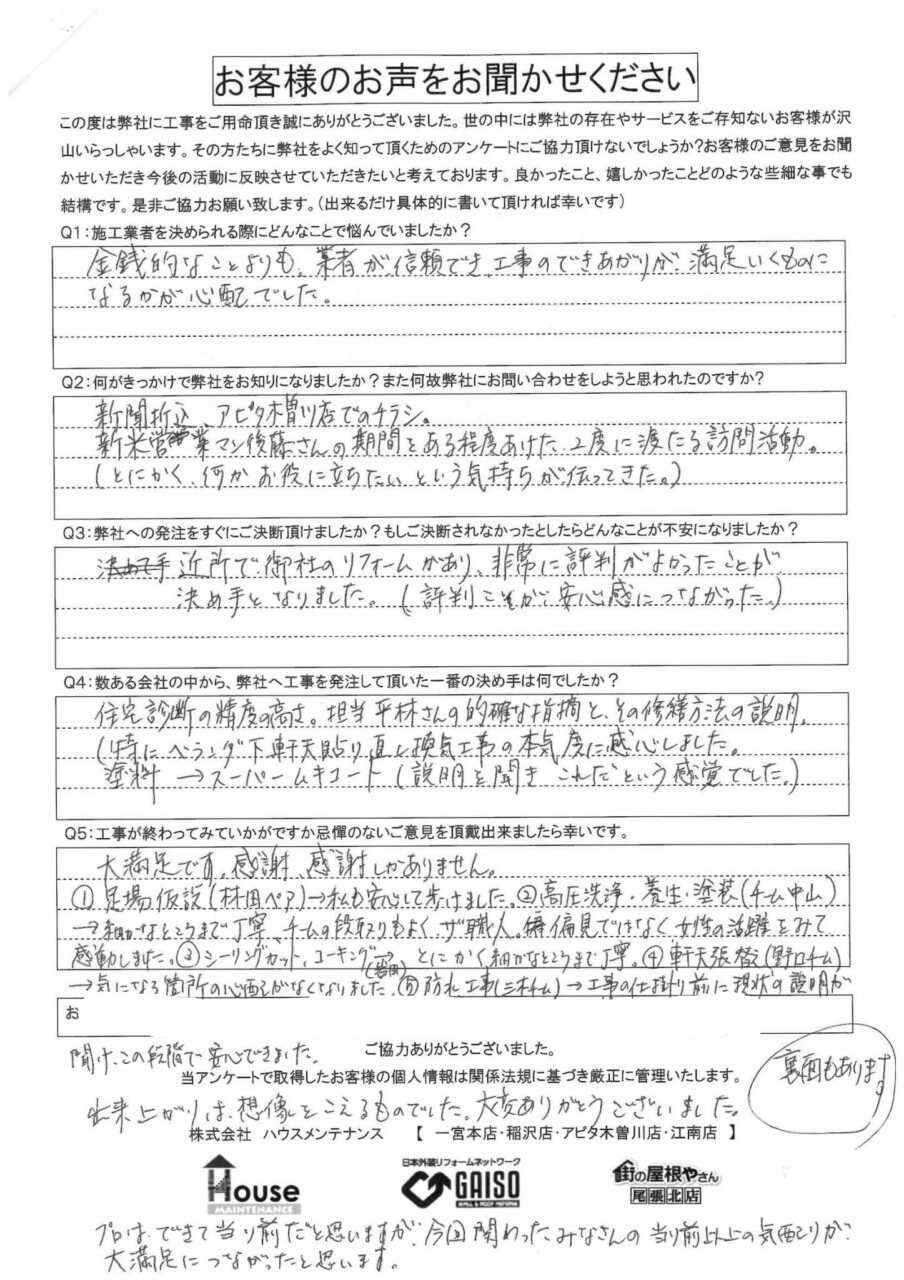 お客様のお声をお聞かせください
この度は弊社に工事をご用命頂き誠にありがとうございました。世の中には弊社の存在やサービスをご存知ないお客様が沢
山いらっしゃいます。その方たちに弊社をよく知って頂くためのアンケートにご協力頂けないでしょうか?お客様のご意見をお聞
かせいただき今後の活動に反映させていただきたいと考えております。良かったこと、嬉しかったことどのような些細な事でも
結構です。是非ご協力お願い致します。(出来るだけ具体的に書いて頂ければ幸いです)
Q1:施工業者を決められる際にどんなことで悩んでいましたか?
金銭的なことよりも、業者が信頼でき、工事のできあがりが、満足いくものに
なるかが心配でした。
Q2:何がきっかけで弊社をお知りになりましたか?また何故弊社にお問い合わせをしようと思われたのですか?
新聞折込、アピタ木曽川店でのチラシ。
新米営業マン後藤さんの期間をある程度あけた、2度に渡たる訪問活動。
(とにかく、何かお役に立ちたいという気持ちが伝ってきた。)
Q3:弊社への発注をすぐにご決断頂けましたか?もしご決断されなかったとしたらどんなことが不安になりましたか?
決めて手 近所で御社のリフォームがあり、非常に評判がよかったことが
決め手となりました。(評判こそが、安心感につながった。)
Q4:数ある会社の中から、弊社へ工事を発注して頂いた一番の決め手は何でしたか?
住宅診断の精度の高さ。担当平林さんの的確な指摘と、その修繕方法の説明。
(特にベランダ下軒天貼り直と換気工事の本気度に感心しました。
塗料 →スーパームキコート(説明を聞き これだという感覚でした。)
Q5:工事が終わってみていかがですか忌憚のないご意見を頂戴出来ましたら幸いです。
大満足です。感謝、感謝しかありません。
① 足場仮設(村田ペア)→私も安心して歩けました。②高圧洗浄・養生・塗装(チーム中山)
→細かなところまで丁寧、チームの段取りもよく、ザ職人。偏見ではなく女性の活躍をみて
感動しました。③シーリングカット、コーキング→とにかく細かなところまで丁寧。④軒天張替(野口チーム)
→気になる箇所の心配がなくなりました。⑤防水工事(三木チーム)→工事の仕掛り前に現状の説明が
お
聞け、この段階で安心できました。
ご協力ありがとうございました。
裏面もあります
当アンケートで取得したお客様の個人情報は関係法規に基づき厳正に管理いたします。
出来上がりは、想像をこえるものでした。大変ありがとうございました。
株式会社 ハウスメンテナンス 【 一宮本店・稲沢店・アピタ木曽川店・江南店 】
House
MAINTENANCE
日本外装リフォームネットワーク
GAISO
WALL & ROOF REFORM
街の屋根やさん
尾張北店
プロは、できて当り前だと思いますが、今回関わったみなさんの当り前以上の気配りが、
大満足につながったと思います。